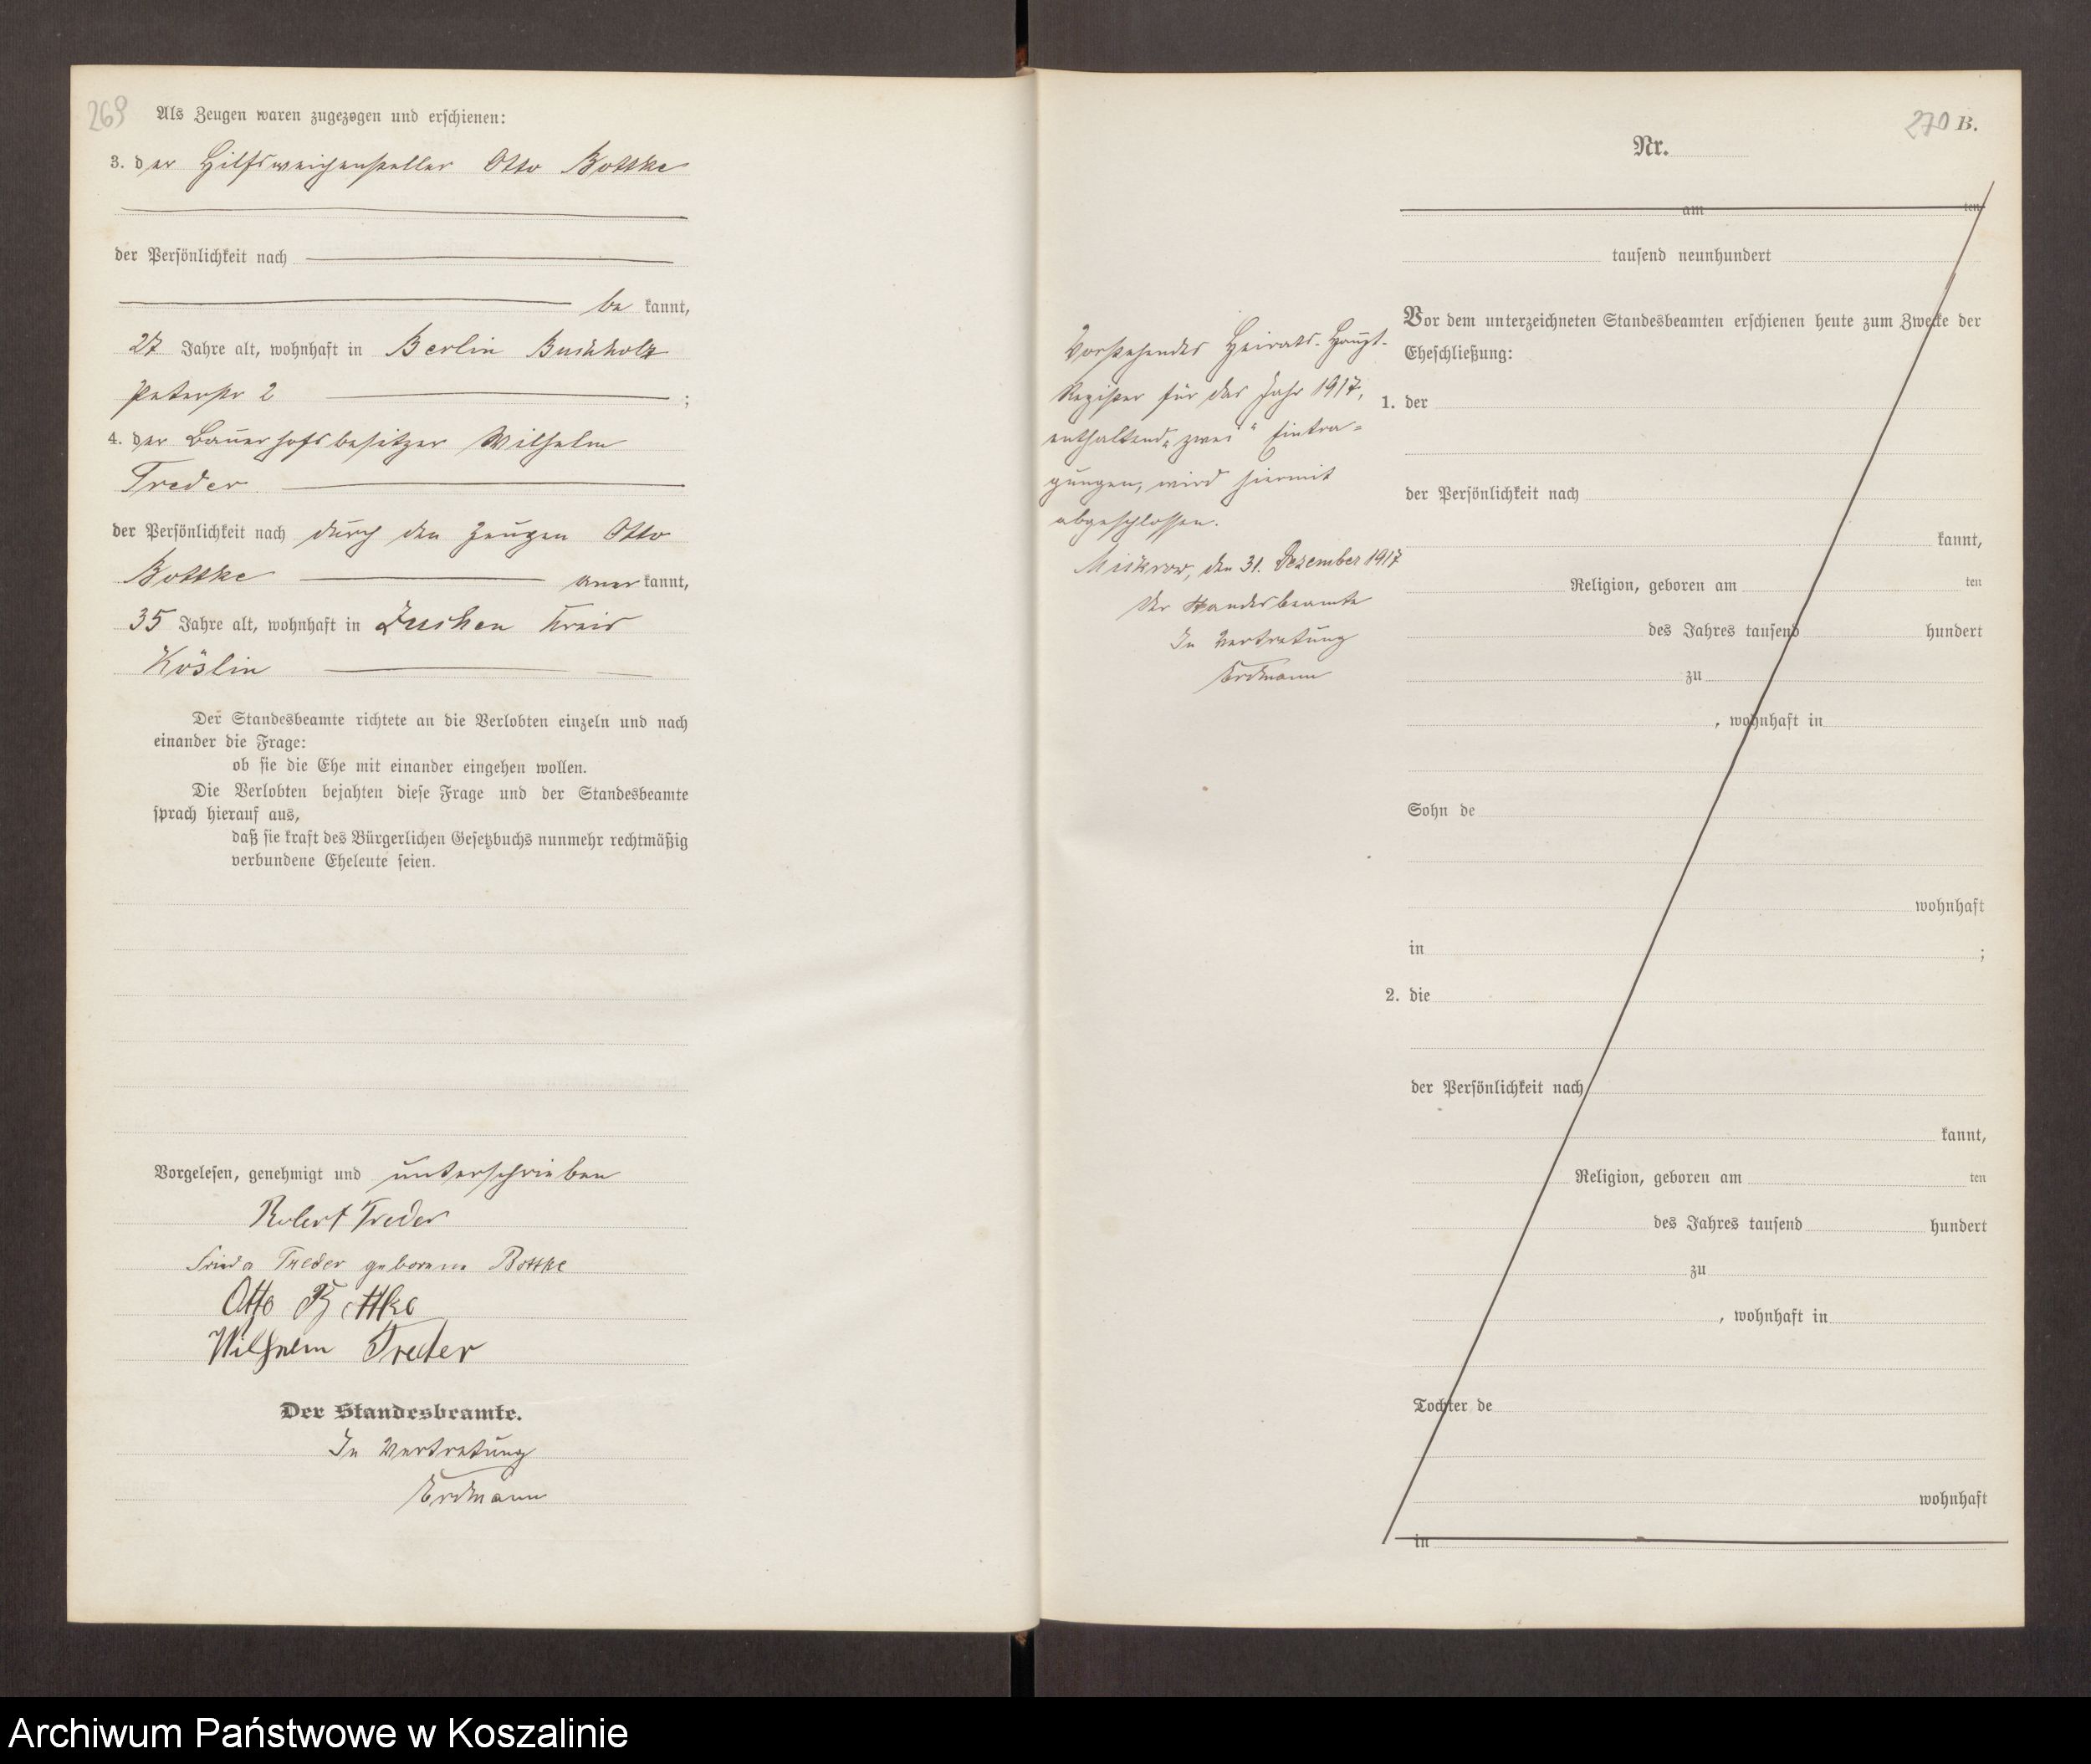 269
Als Zeugen waren zugezogen und erschienen:
3. der Hilfsweichensteller Otto Bottke
der Persönlichkeit nach
be kannt,
27 Jahre alt, wohnhaft in Berlin Buchholz
Peterstr 2 ;
4. der Bauerhofsbesitzer Wilhelm
Treder
der Persönlichkeit nach durch den Zeugen Otto
Bottke aner kannt,
35 Jahre alt, wohnhaft in Zuchen Kreis
Köslin
Der Standesbeamte richtete an die Verlobten einzeln und nach
einander die Frage:
ob sie die Ehe mit einander eingehen wollen.
Die Verlobten bejahten diese Frage und der Standesbeamte
sprach hierauf aus,
daß sie kraft des Bürgerlichen Gesetzbuchs nunmehr rechtmäßig
verbundene Eheleute seien.
Vorgelesen, genehmigt und unterschrieben
Robert Treder
Frieda Treder geborene Bottke
Otto Bottke
Wilhelm Treder
Der Standesbeamte.
In Vertretung
Erdmann
270 B.
Nr.
am ten
tausend neunhundert
Vor dem unterzeichneten Standesbeamten erschienen heute zum Zwecke der
Eheschließung:
1. der
der Persönlichkeit nach
kannt,
Religion, geboren am ten
des Jahres tausend hundert
zu
, wohnhaft in
Sohn de
wohnhaft
in ;
2. die
der Persönlichkeit nach
kannt,
Religion, geboren am ten
des Jahres tausend hundert
zu
, wohnhaft in
Tochter de
wohnhaft
in
Vorstehendes Heirats-Haupt-
Register für das Jahr 1917,
enthaltend „zwei“ Eintra-
gungen, wird hiermit
abgeschlossen.
Mickrow, den 31. Dezember 1917
Der Standesbeamte
In Vertretung
Erdmann
Archiwum Państwowe w Koszalinie